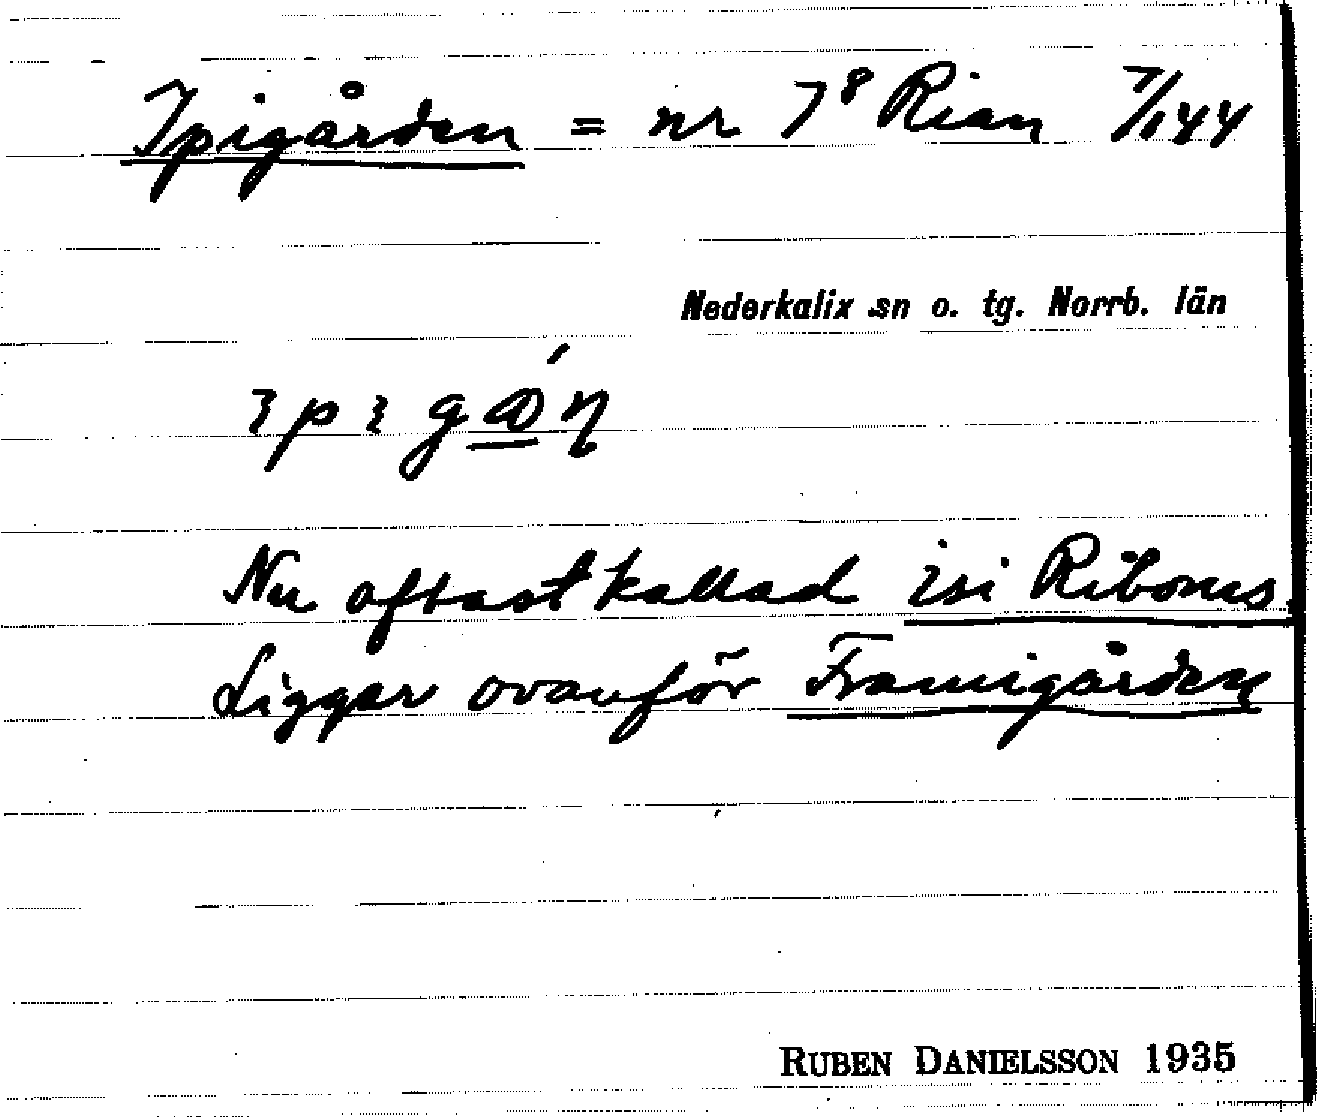 Ipigården = nr 7⁸ Rian 7/144
Nederkalix sn o. tg. Norrb. län
Nu oftast kallad isi Riboms.
Ligger ovanför Framigården
RUBEN DANIELSSON 1935